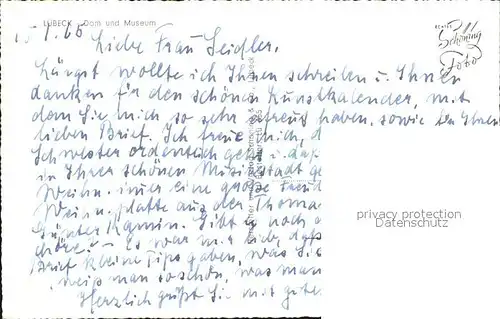 LÜBECK Dom und Museum
15.1.66
Liebe Frau Seidler,
Längst wollte ich Ihnen schreiben u. Ihnen
danken für den schönen Kunstkalender, mit
dem Sie mich so sehr erfreut haben, sowie den
lieben Brief. Ich freue mich, d
Schwester ordentlich geht u. daß
in Ihrer schönen Musikstadt
Weihn. immer eine große Freude
Weihn. platte aus der Thomas
Günter Ramin. Gibt es noch
chöre? - Es war
Brief kleine Tips gaben, was Sie
weiß man so schön, was man
Herzlich grüßt Sie mit guten
Schöning
Foto
privacy protection
Datenschutz